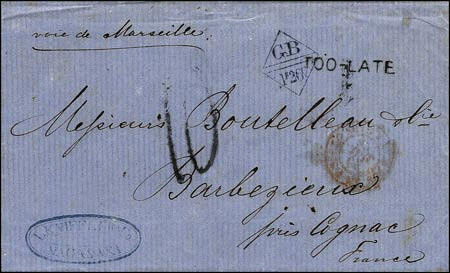 voie de Marseille
GB
1F20c
TOO-LATE
Messieurs Boutelleau & Cie
Barbezieux
près Cognac
France